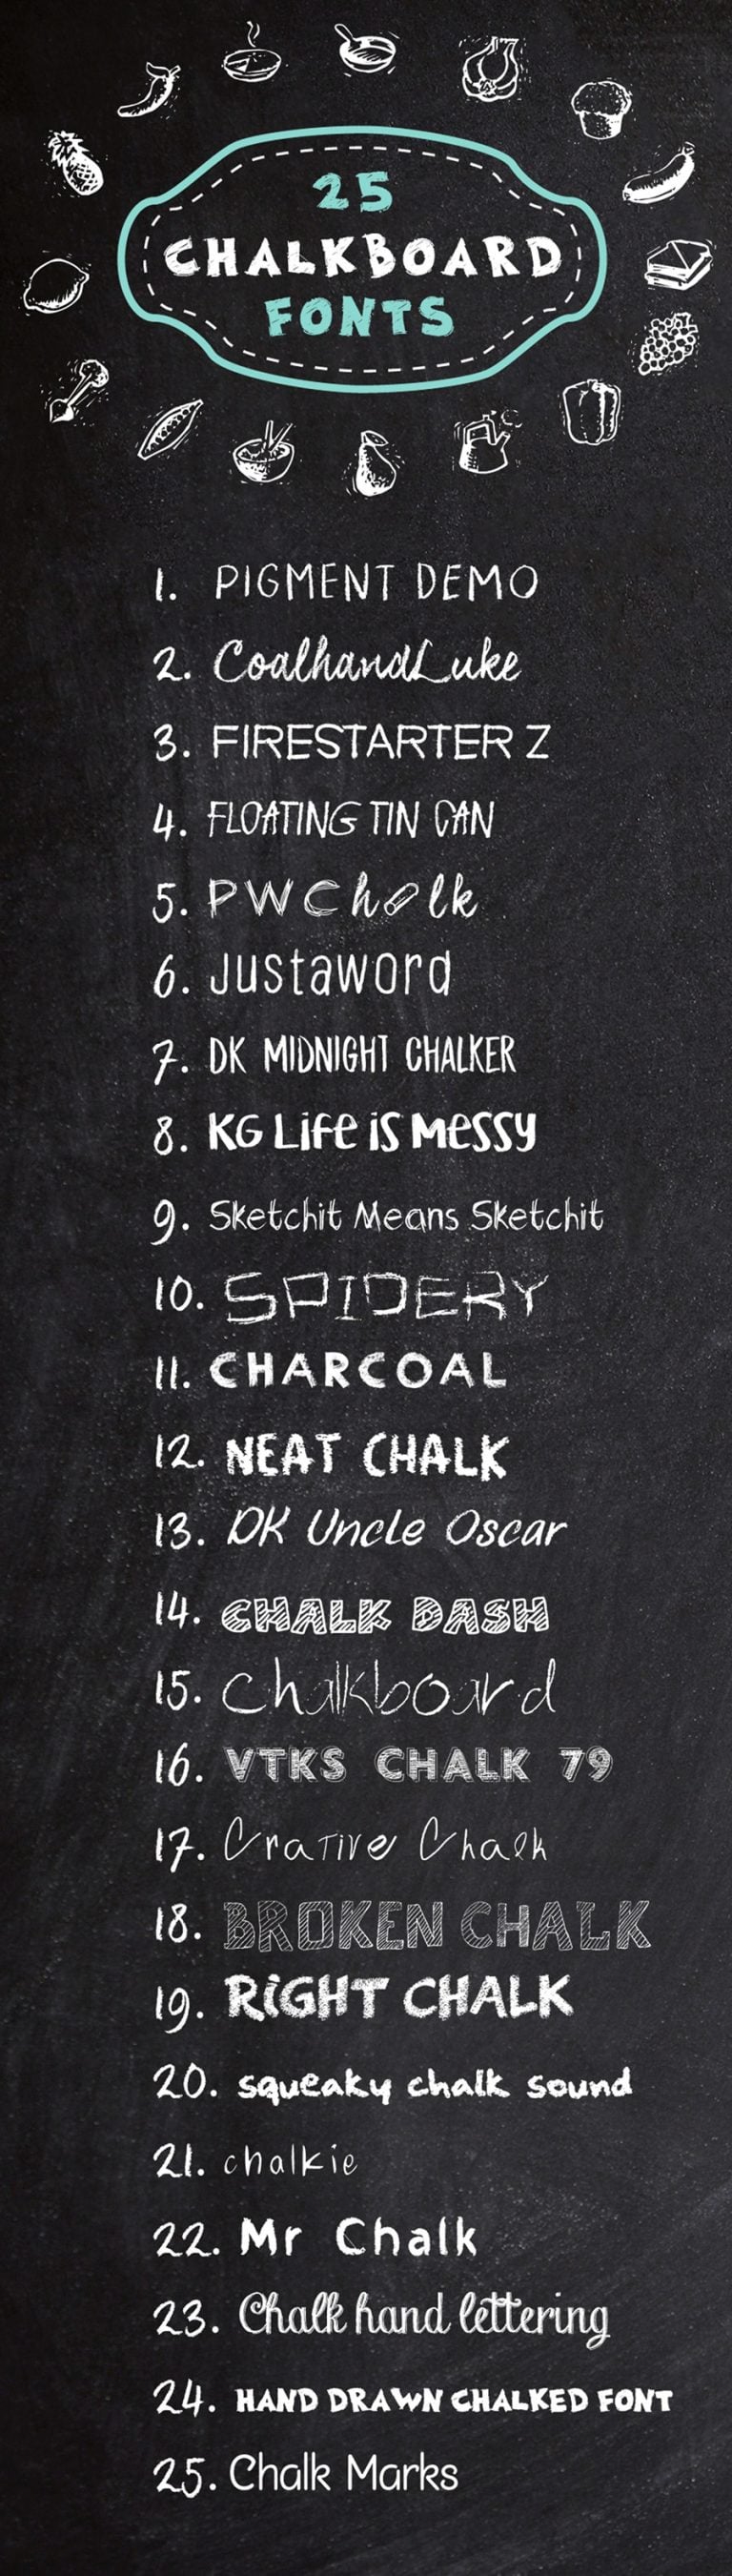 25
CHALKBOARD
FONTS
1. PIGMENT DEMO
2. CoalhandLuke
3. FIRESTARTER Z
4. FLOATING TIN CAN
5. PWChalk
6. Justaword
7. DK MIDNIGHT CHALKER
8. KG Life is Messy
9. Sketchit Means Sketchit
10. SPIDERY
11. CHARCOAL
12. NEAT CHALK
13. DK Uncle Oscar
14. CHALK DASH
15. Chalkboard
16. VTKS CHALK 79
17. Crative Chalk
18. BROKEN CHALK
19. RiGHT CHALK
20. squeaky chalk sound
21. chalkie
22. Mr Chalk
23. Chalk hand lettering
24. HAND DRAWN CHALKED FONT
25. Chalk Marks